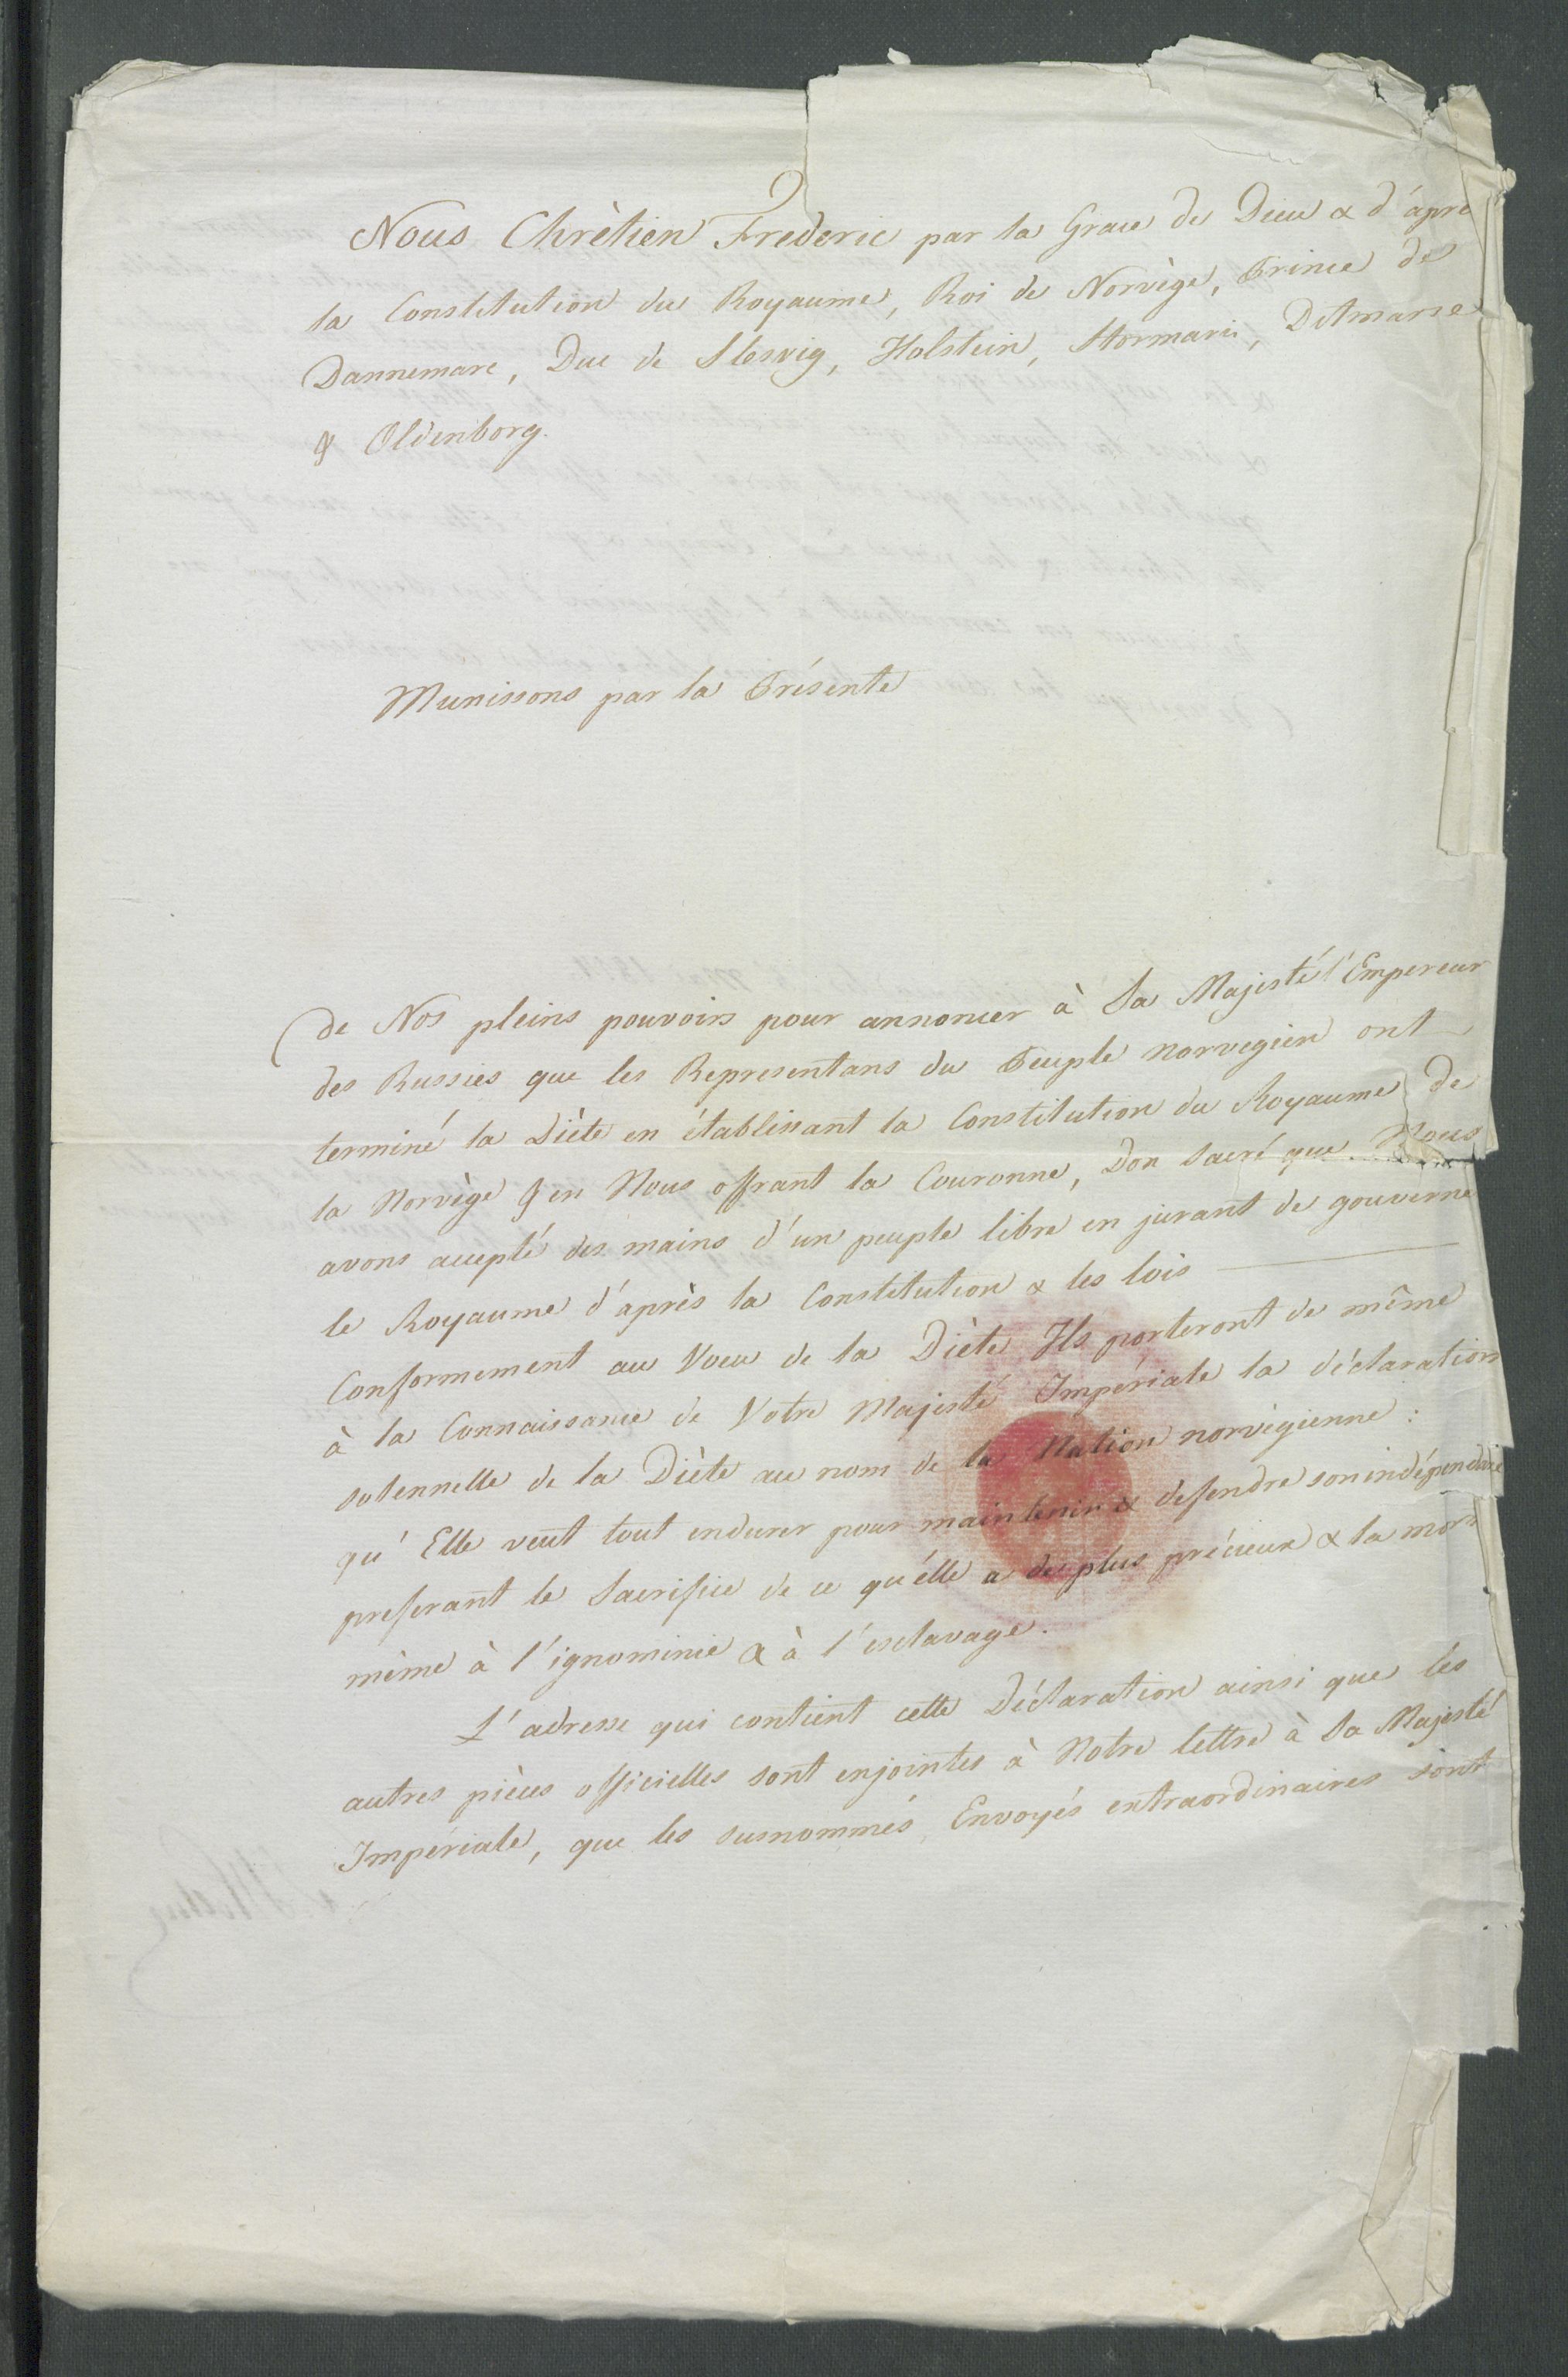 Nous Chrètien Frederic par la Grace de Dieu & d'ápre
la Constitution du Royaume, Roi de Norvège, Prince de
Dannemarc, Duc de Slesvig, Holstein, Stormarn, Ditmarse
& Oldenborg.
Munissons par la Présente
de Nos pleins pouvoirs pour annoncer à Sa Majesté l'Empereur
des Russies que les Representans du Peuple norvegien ont
terminé la Diète en établissant la Constitution du Royaume de
la Norvège & en Nous offrant la Couronne, Don sacré que Nous
avons accepté des mains d'un peuple libre en jurant de gouverne
le Royaume d'après la Constitution & les lois
Conformement au Voeu de la Diète Ils porteront de même
à la Connaissance de Votre Majesté Impériale la déclaration
solennelle de la Diète au nom de la Nation norvégienne:
qu'Elle veut tout endurer pour maintenir & defendre son indépendance
preferant le Sacrifice de ce qu'élle a de plus précieux & la mort
même à l'ignominie & à l'esclavage.
L'adresse qui contient cette Déclaration ainsi que les
autres pièces officielles sont enjointes à Notre lettre à Sa Majesté
Impériale, que les susnommés Envoyés extraordinaires sont